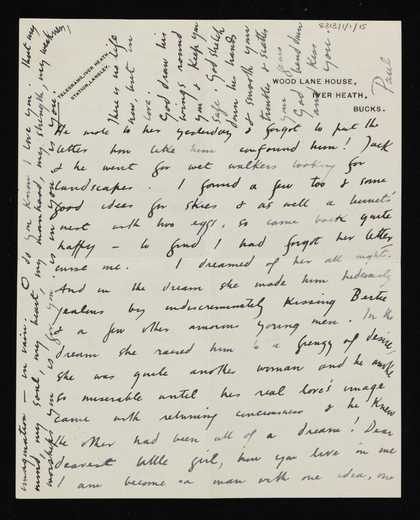 8313/1/1/15
TELEGRAMS, IVER HEATH.
STATION, LANGLEY.
WOOD LANE HOUSE,
IVER HEATH.
BUCKS.
He wrote to her yesterday & forgot to put the
letter how like him confound him! Jack
& he went for wet walkers looking for
landscapes. I found a few too & some
good ideas for skies & as well a linnet's
nest with two eggs, so came back quite
happy – to find I had forgot her letter
curse me. I dreamed of her all night.
And in the dream she made him hideously
jealous by indiscriminately kissing Bertie
& a few other amorous young men. In the
dream she raised him to a frenzy of desire,
she was quite another woman and he awoke
so miserable until his real love's image
came with returning consciousness & he knew
the other had been all of a dream! Dear
dearest little girl, how you live in me
I am become a man with one idea, one
imagination – in vain. O do you know I love you, that my
mind, my soul, my heart, my manhood, my strength, my weakness,
worships you is for you. is in you & is you –
There is no life
now, but in
love.
God draw his
wings round
you & keep you
safe. God stretch
down his hands
& smooth your
troubles & scatter
your fears
God's hand down
and kiss
you.
Paul